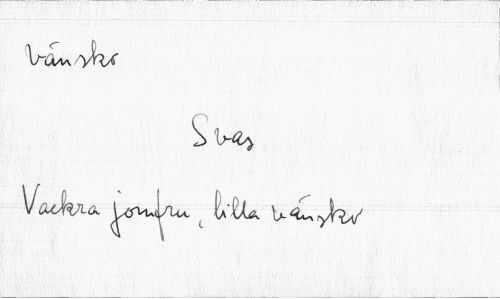 vänsko
Svas
Vackra jomfru, lilla vänsko